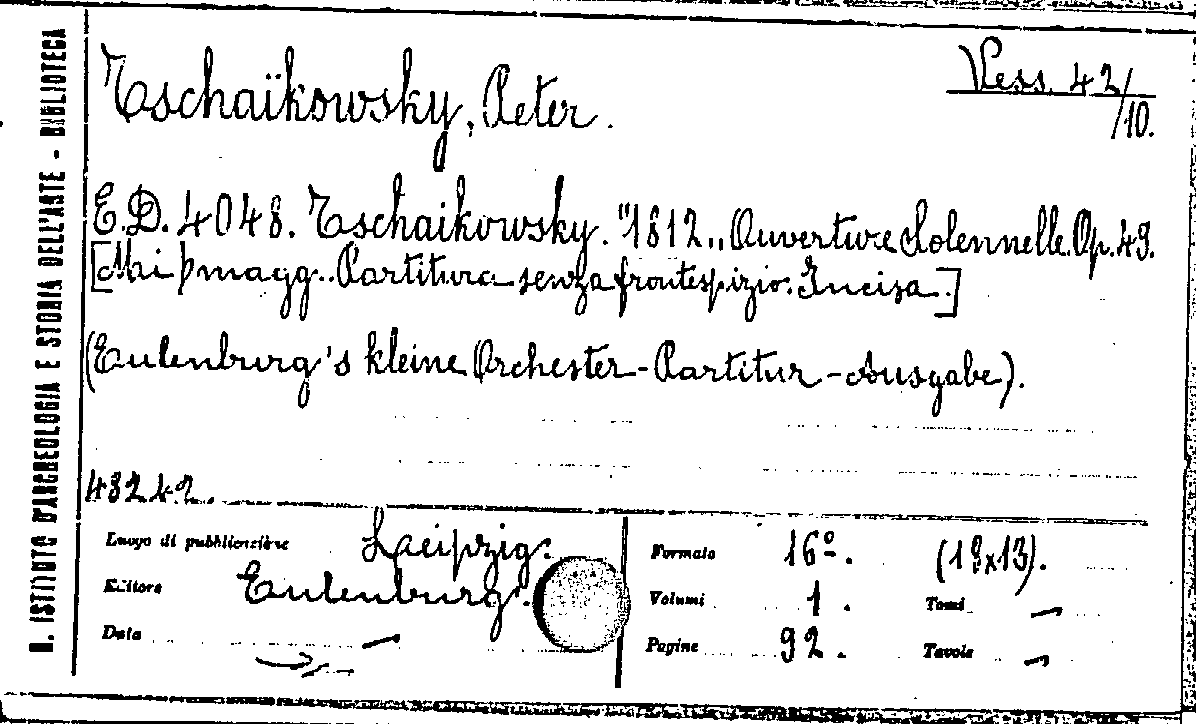 R. ISTITUTO D'ARCHEOLOGIA E STORIA DELL'ARTE - BIBLIOTECA
Vess. 42/10.
Tschaïkowsky, Peter.
E.D. 4048. Tschaikowsky. "1812„ Ouverture Solennelle. Op. 49.
[Mi♭ magg. Partitura senza frontespizio. Incisa.]
(Eulenburg's kleine Orchester-Partitur-Ausgabe).
48242.
Luogo di pubblicazione Laeipzig.
Editore Eulenburg.
Data —
Formato 16º. (18x13).
Volumi 1. Tomi —
Pagine 92. Tavole —